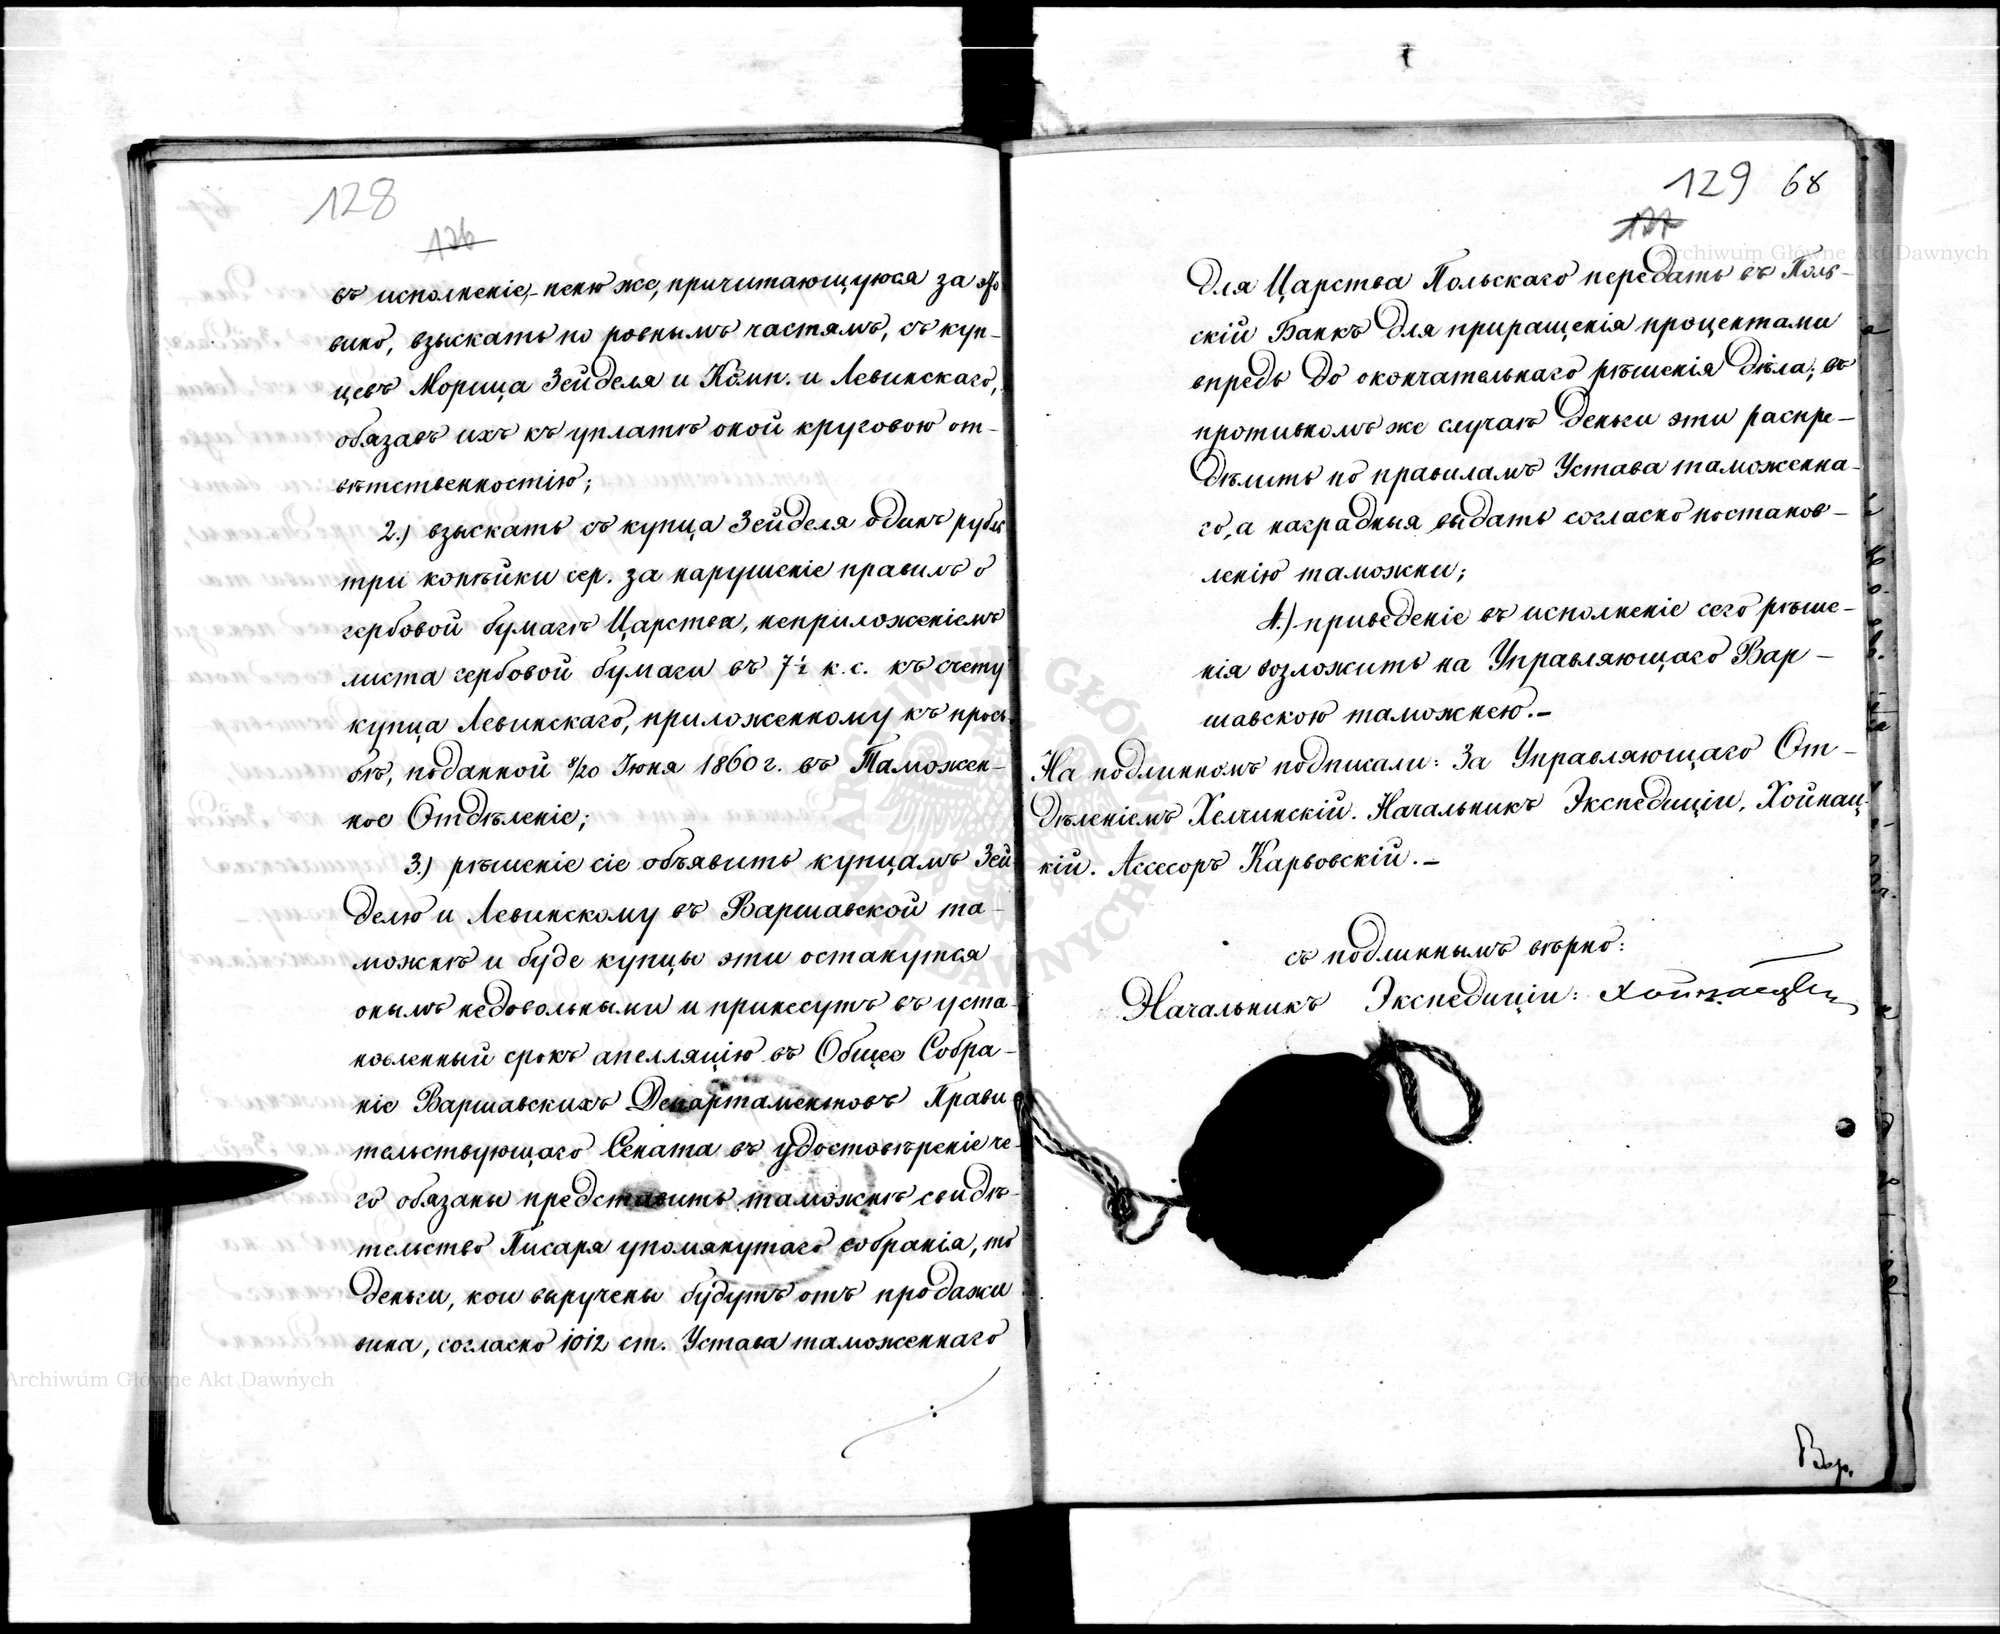 128
126
въ исполненіе,- пеню же, причитающуюся за это
вино, взыскать по ровнымъ частямъ, съ куп-
цевъ Морица Зейделя и Комп. и Левинскаго,
обязавъ ихъ къ уплатѣ оной круговою от-
вѣтственностію;
2.) взыскать съ купца Зейделя одинъ рубль
три копѣйки сер. за нарушеніе правилъ о
гербовой бумагѣ Царства, неприложеніемъ
листа гербовой бумаги въ 7½ к. с. къ счету
купца Левинскаго, приложенному къ прось-
бѣ, поданной 8/20 Іюня 1860 г. въ Таможен-
ное Отдѣленіе;
3.) рѣшеніе сіе объявить купцамъ Зей
делю и Левинскому въ Варшавской та-
можнѣ и буде купцы эти останутся
онымъ недовольными и принесутъ въ уста-
новленный срокъ апелляцію въ Общее Собра-
ніе Варшавскихъ Департаментовъ Прави
тельствующаго Сената въ удостовѣреніе че-
го обязаны представить таможнѣ свидѣ-
тельство Писаря упомянутаго собранія, то
деньги, кои выручены будутъ отъ продажи
вина, согласно 1012 ст. Устава таможеннаго
129 68
127
для Царства Польскаго передать въ Поль-
скій Банкъ для приращенія процентами
впредь до окончательнаго рѣшенія дѣла; въ
противномъ же случаѣ деньги эти распре-
дѣлить по правиламъ Устава таможенна-
го, а наградныя выдать согласно постанов-
ленію таможни;
4.) приведеніе въ исполненіе сего рѣше-
нія возложить на Управляющаго Вар-
шавскою таможнею.-
На подлинномъ подписали: За Управляющаго От-
дѣленіемъ Хелчинскій. Начальникъ Экспедиціи, Хойнац-
кій. Ассесоръ Карвовскій.-
съ подлиннымъ вѣрно:
Начальникъ Экспедиціи: Хойнацкій
Вер.
Archiwum Główne Akt Dawnych
Archiwum Główne Akt Dawnych
ARCHIWUM GŁÓWNE AKT DAWNYCH